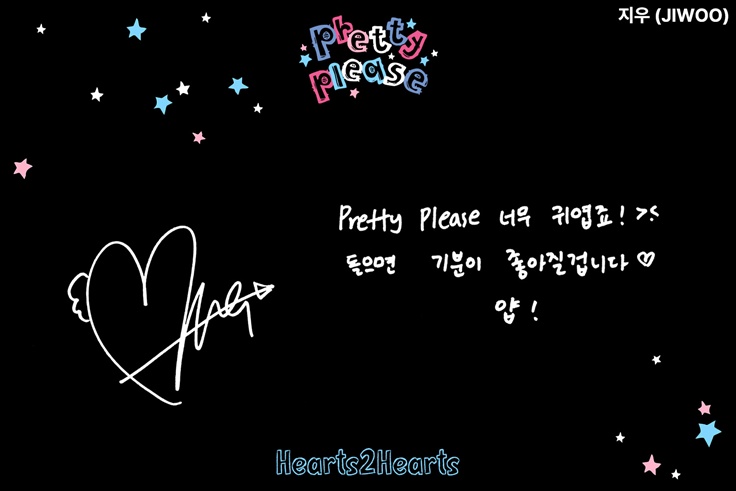 지우 (JIWOO)
pretty
please
Pretty Please 너무 귀엽죠! ><
들으면 기분이 좋아질겁니다♡
얍!
Hearts2Hearts